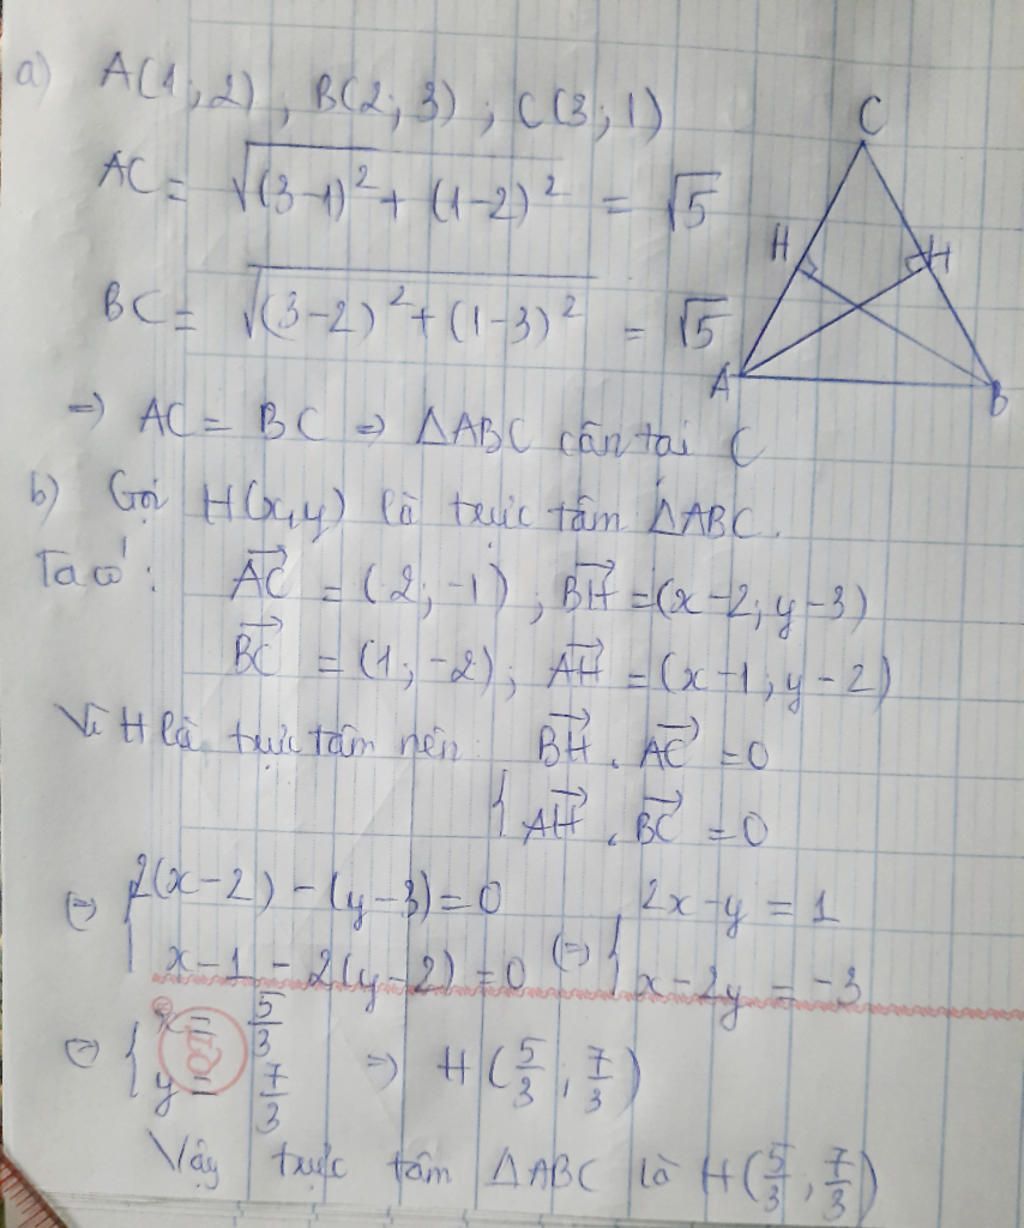 a) A(1;2), B(2;3); C(3;1)
AC = √((3-1)² + (1-2)²) = √5
BC = √((3-2)² + (1-3)²) = √5
⇒ AC = BC ⇒ ΔABC cân tại C
C
H
H
A
B
b) Gọi H(x,y) là trực tâm ΔABC.
Ta có: AC→ = (2;-1); BH→ = (x-2; y-3)
BC→ = (1;-2); AH→ = (x-1; y-2)
Vì H là trực tâm nên { BH→ . AC→ = 0
AH→ . BC→ = 0
⇔ { 2(x-2) - (y-3) = 0 ⇔ { 2x-y = 1
x-1 - 2(y-2) = 0 x-2y = -3
⇔ { x = 5/3
y = 7/3 ⇒ H(5/3; 7/3)
Vậy trực tâm ΔABC là H(5/3; 7/3)